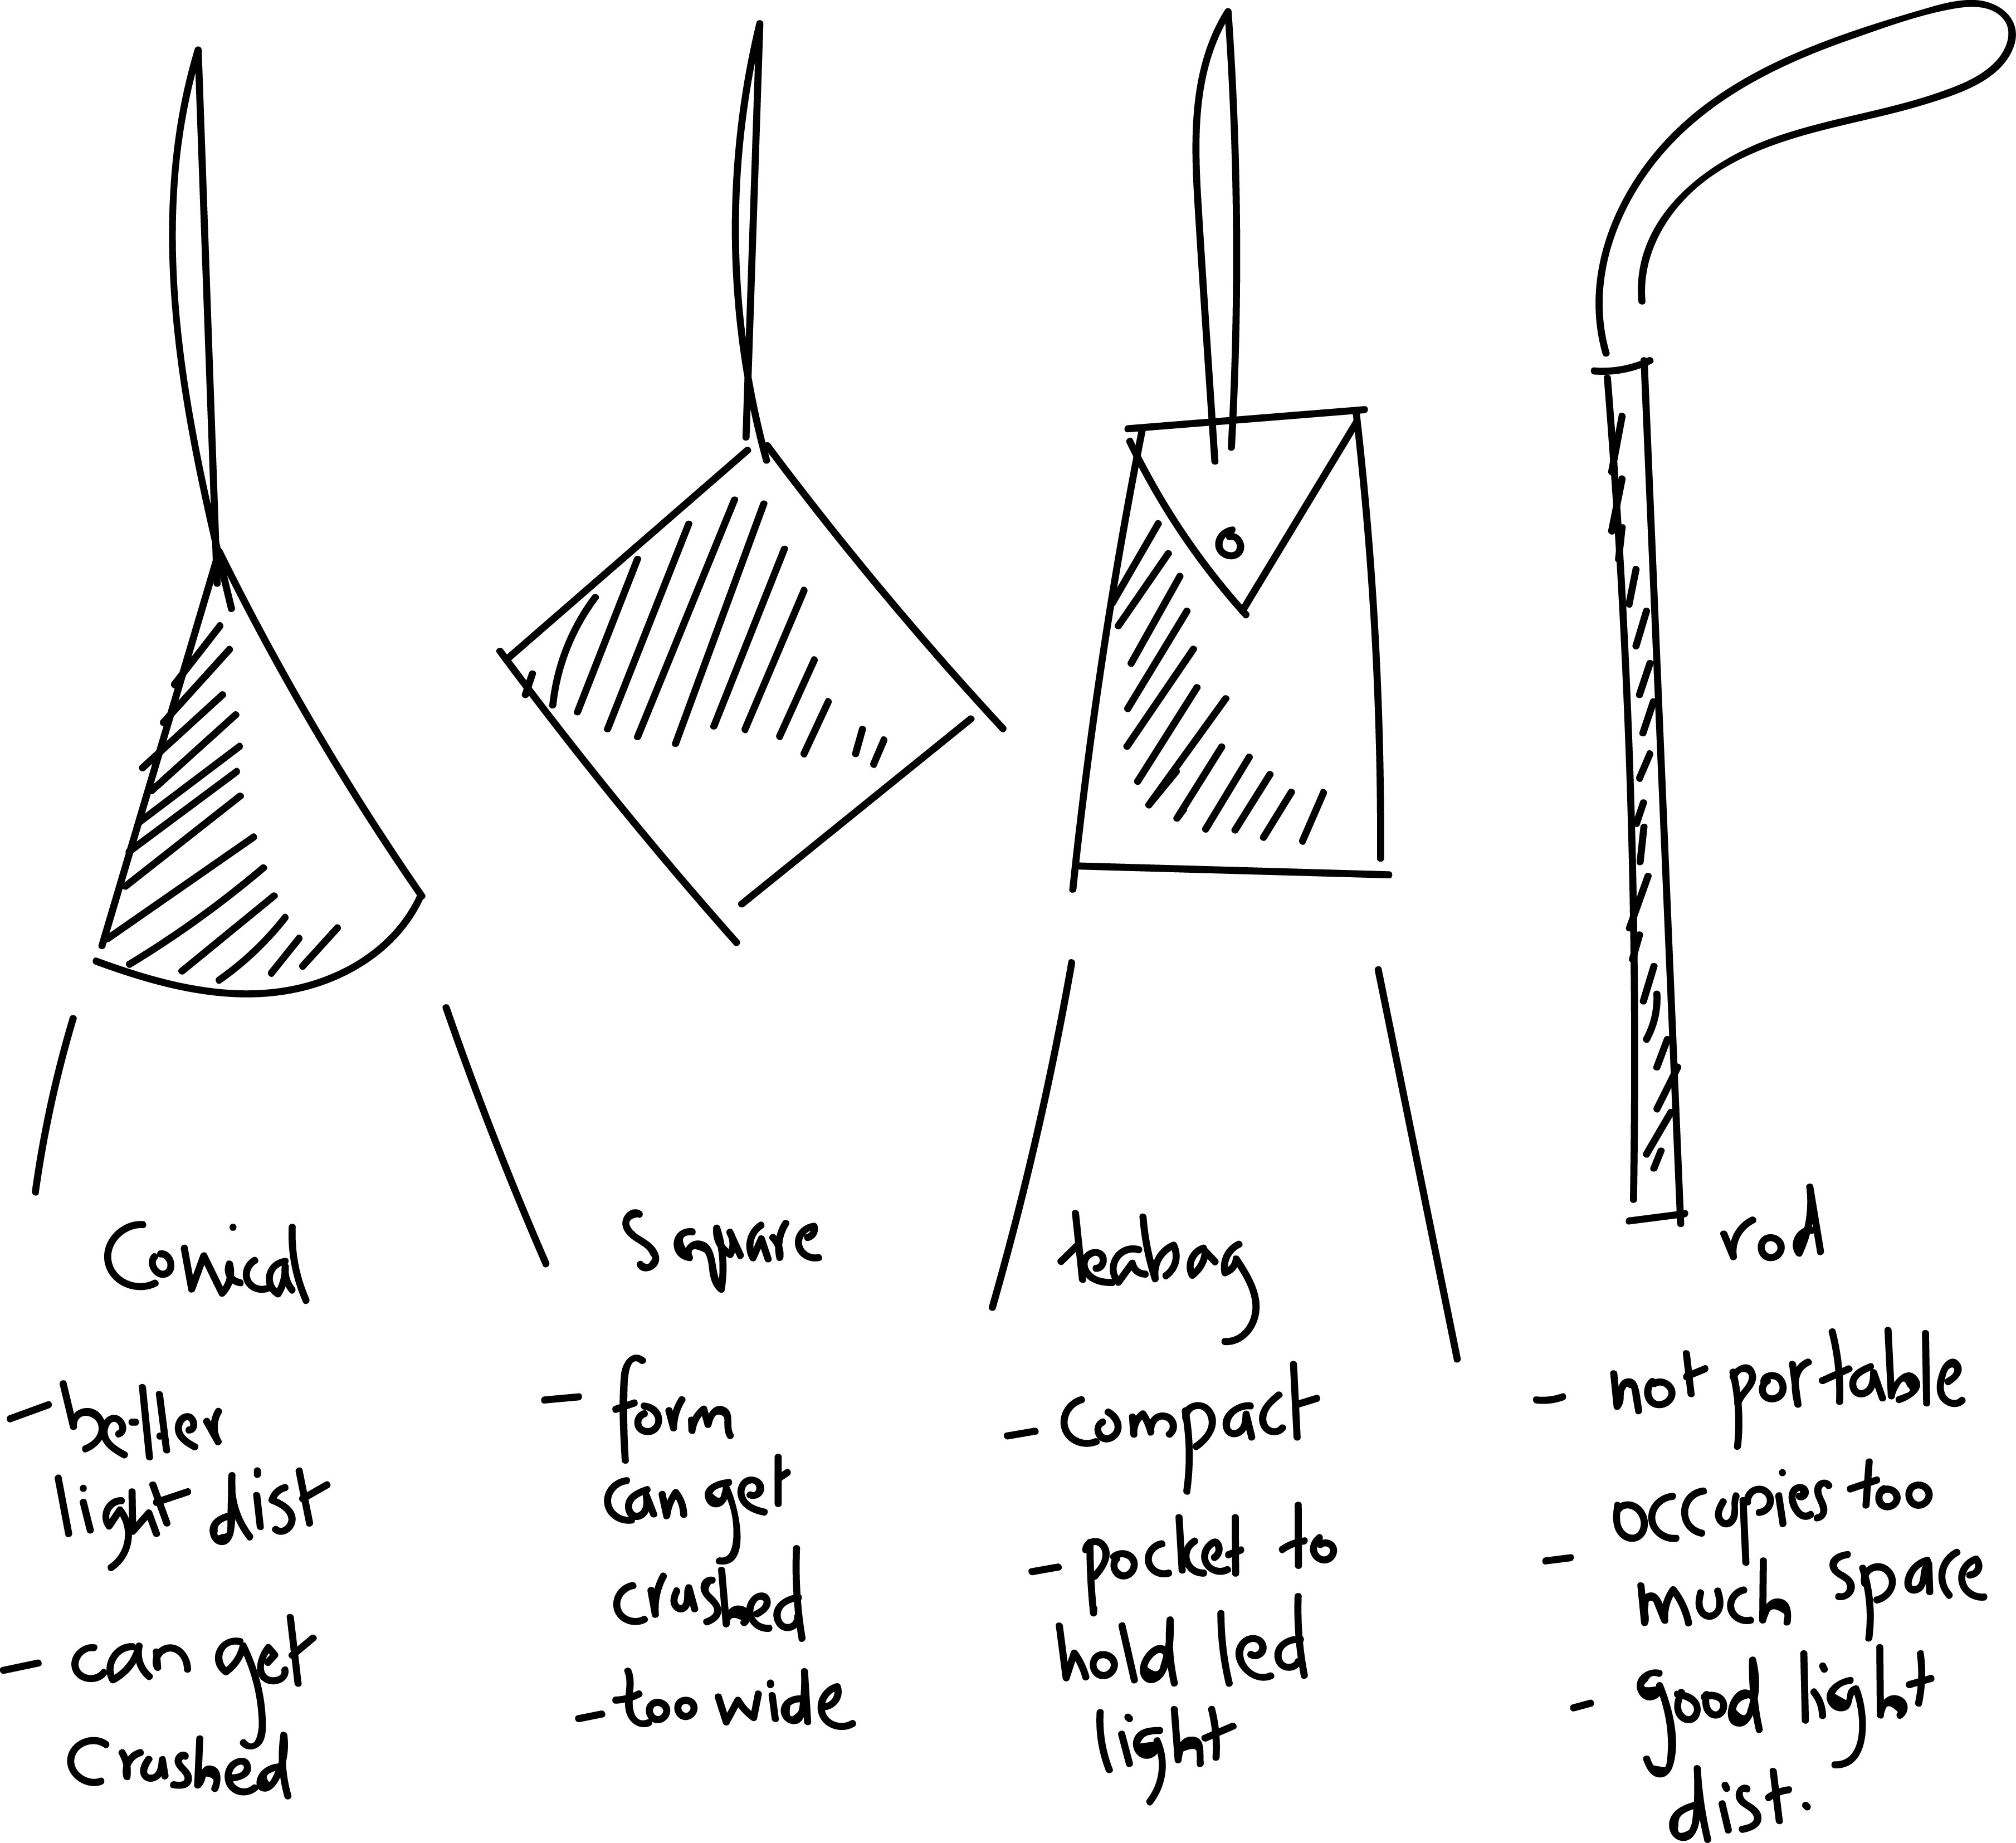 Conical
- better
light dist
- can get
crushed
Square
- form
can get
crushed
- too wide
teabag
- compact
- pocket to
hold led
light
rod
- not portable
- occupies too
much space
- good light
dist.